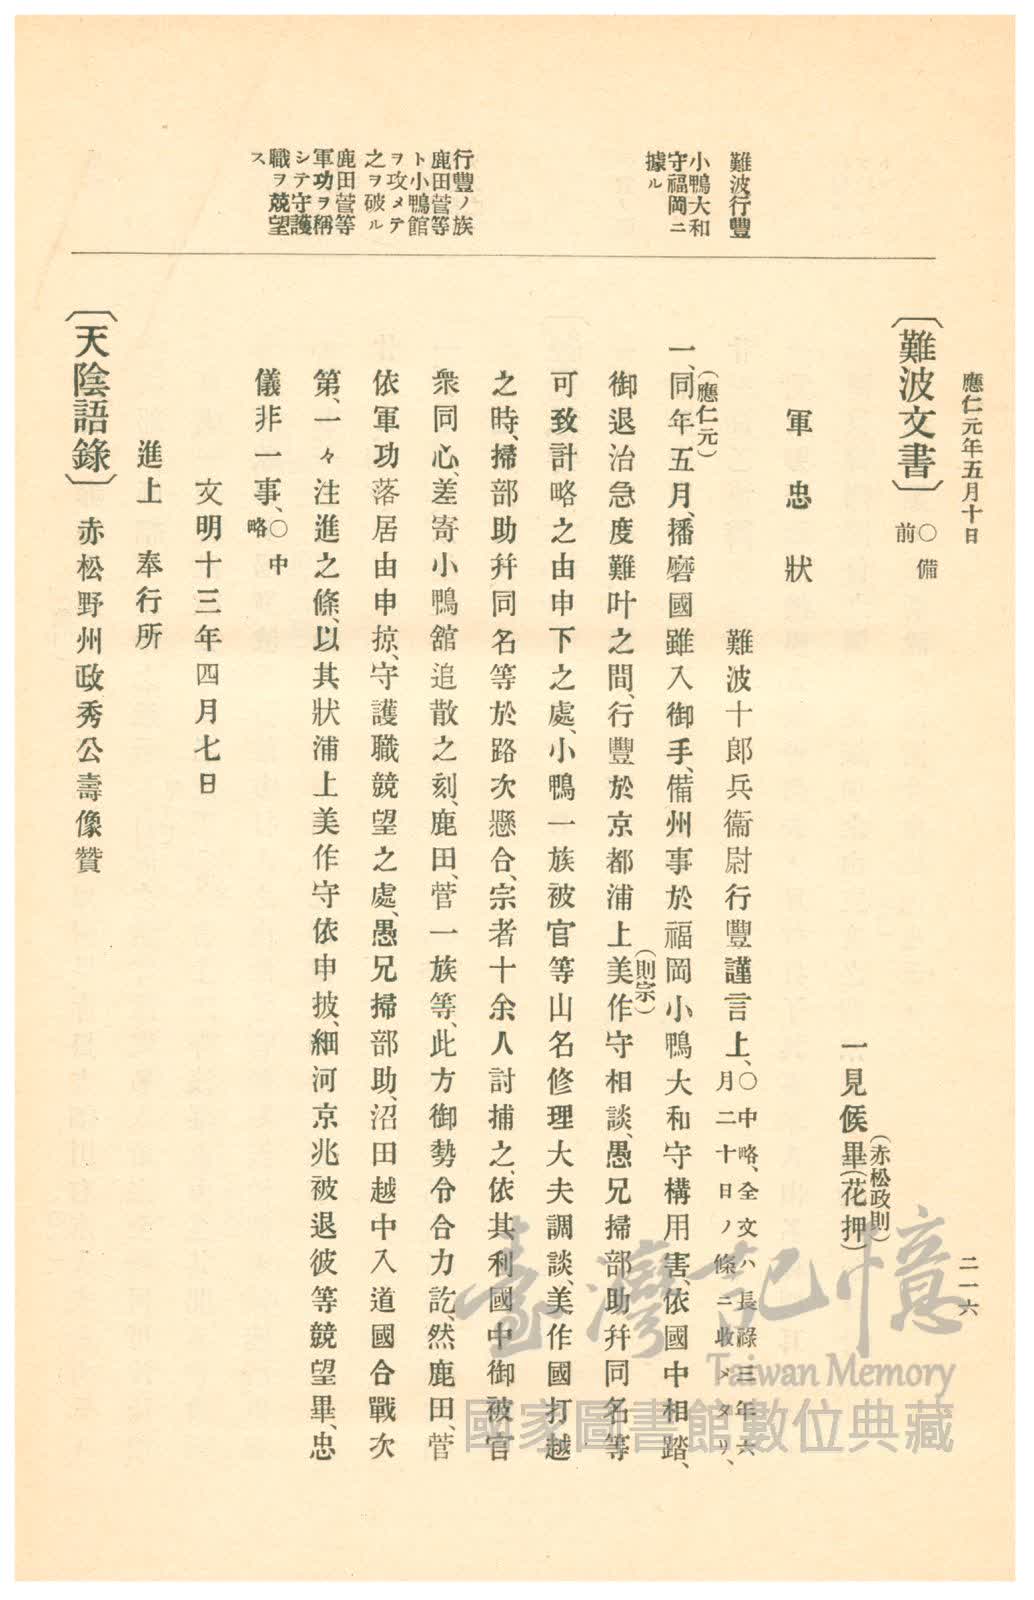 應仁元年五月十日
二一六
難波行豐
小鴨大和
守福岡ニ
據ル
行豐ノ族
鹿田菅等
ト小鴨館
ヲ攻メテ
之ヲ破ル
鹿田菅等
軍功ヲ稱
シテ守護
職ヲ競望
ス
〔難波文書〕○備前
一見候畢(花押)
(赤松政則)
軍忠狀
難波十郎兵衞尉行豐謹言上、○中略、全文ハ長祿三年六月二十日ノ條ニ收メタリ、
(應仁元)
一、同年五月、播磨國雖入御手、備州事於福岡小鴨大和守構用害、依國中相踏、
御退治急度難叶之間、行豐於京都浦上美作守相談、愚兄掃部助幷同名等
(則宗)
可致計略之由申下之處、小鴨一族被官等山名修理大夫調談、美作國打越
之時、掃部助幷同名等於路次懸合、宗者十余人討捕之、依其利國中御被官
衆同心、差寄小鴨舘追散之刻、鹿田、菅一族等、此方御勢令合力訖、然鹿田、菅
依軍功落居由申掠、守護職競望之處、愚兄掃部助、沼田越中入道國合戰次
第、一々注進之條、以其狀浦上美作守依申披、細河京兆被退彼等競望畢、忠
儀非一事、○中略
文明十三年四月七日
進上 奉行所
〔天陰語錄〕赤松野州政秀公壽像贊
臺灣記憶
Taiwan Memory
國家圖書館數位典藏